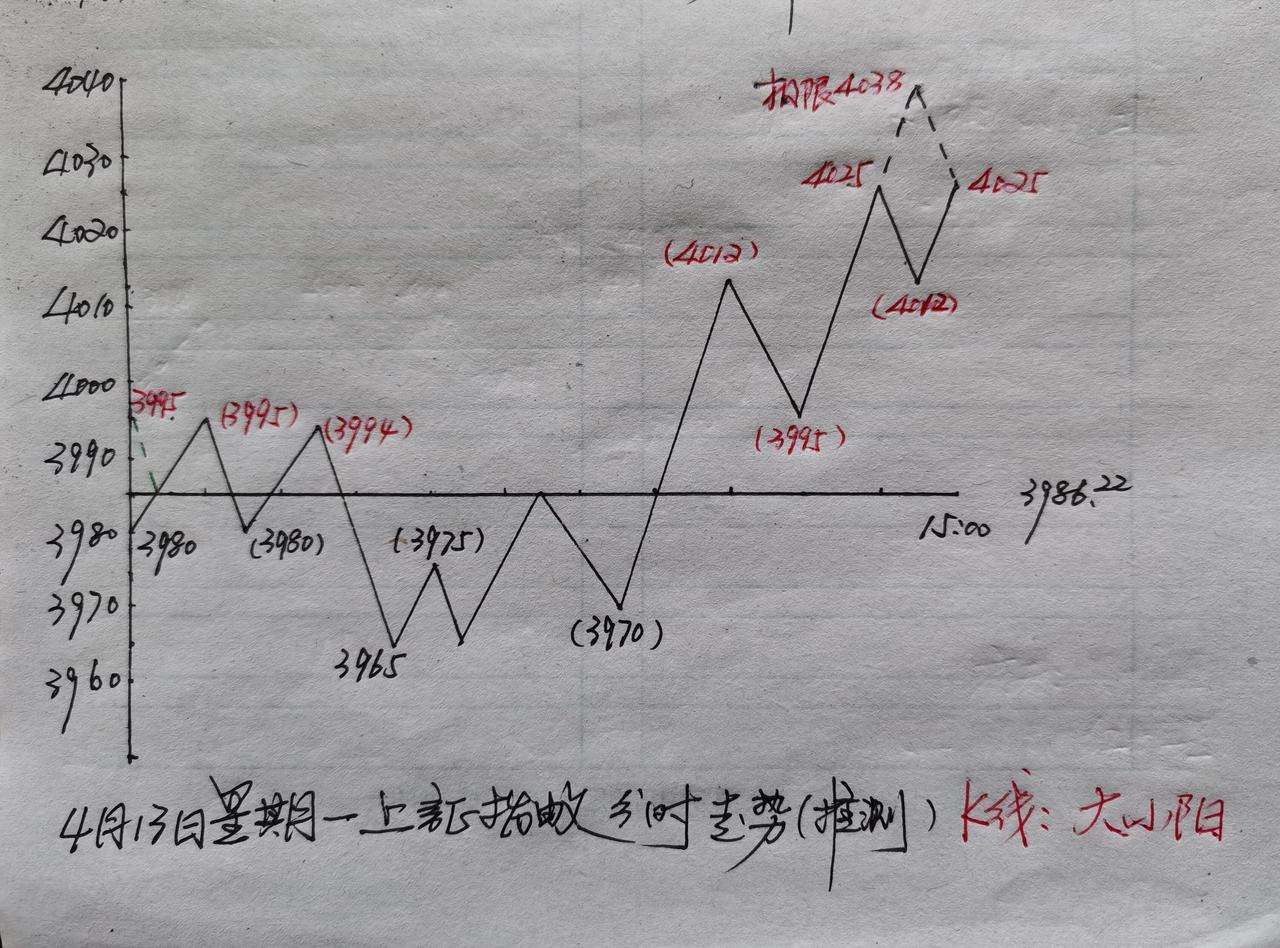 4040
极限4038
4030
4025
4025
4020
(4012)
4010
(4012)
4000
3995
(3995)
(3994)
(3995)
3990
3986.22
15:00
3980
3980
(3980)
(3975)
3970
(3970)
3965
3960
4月13日星期一上证指数分时走势(推测) K线:大小阳